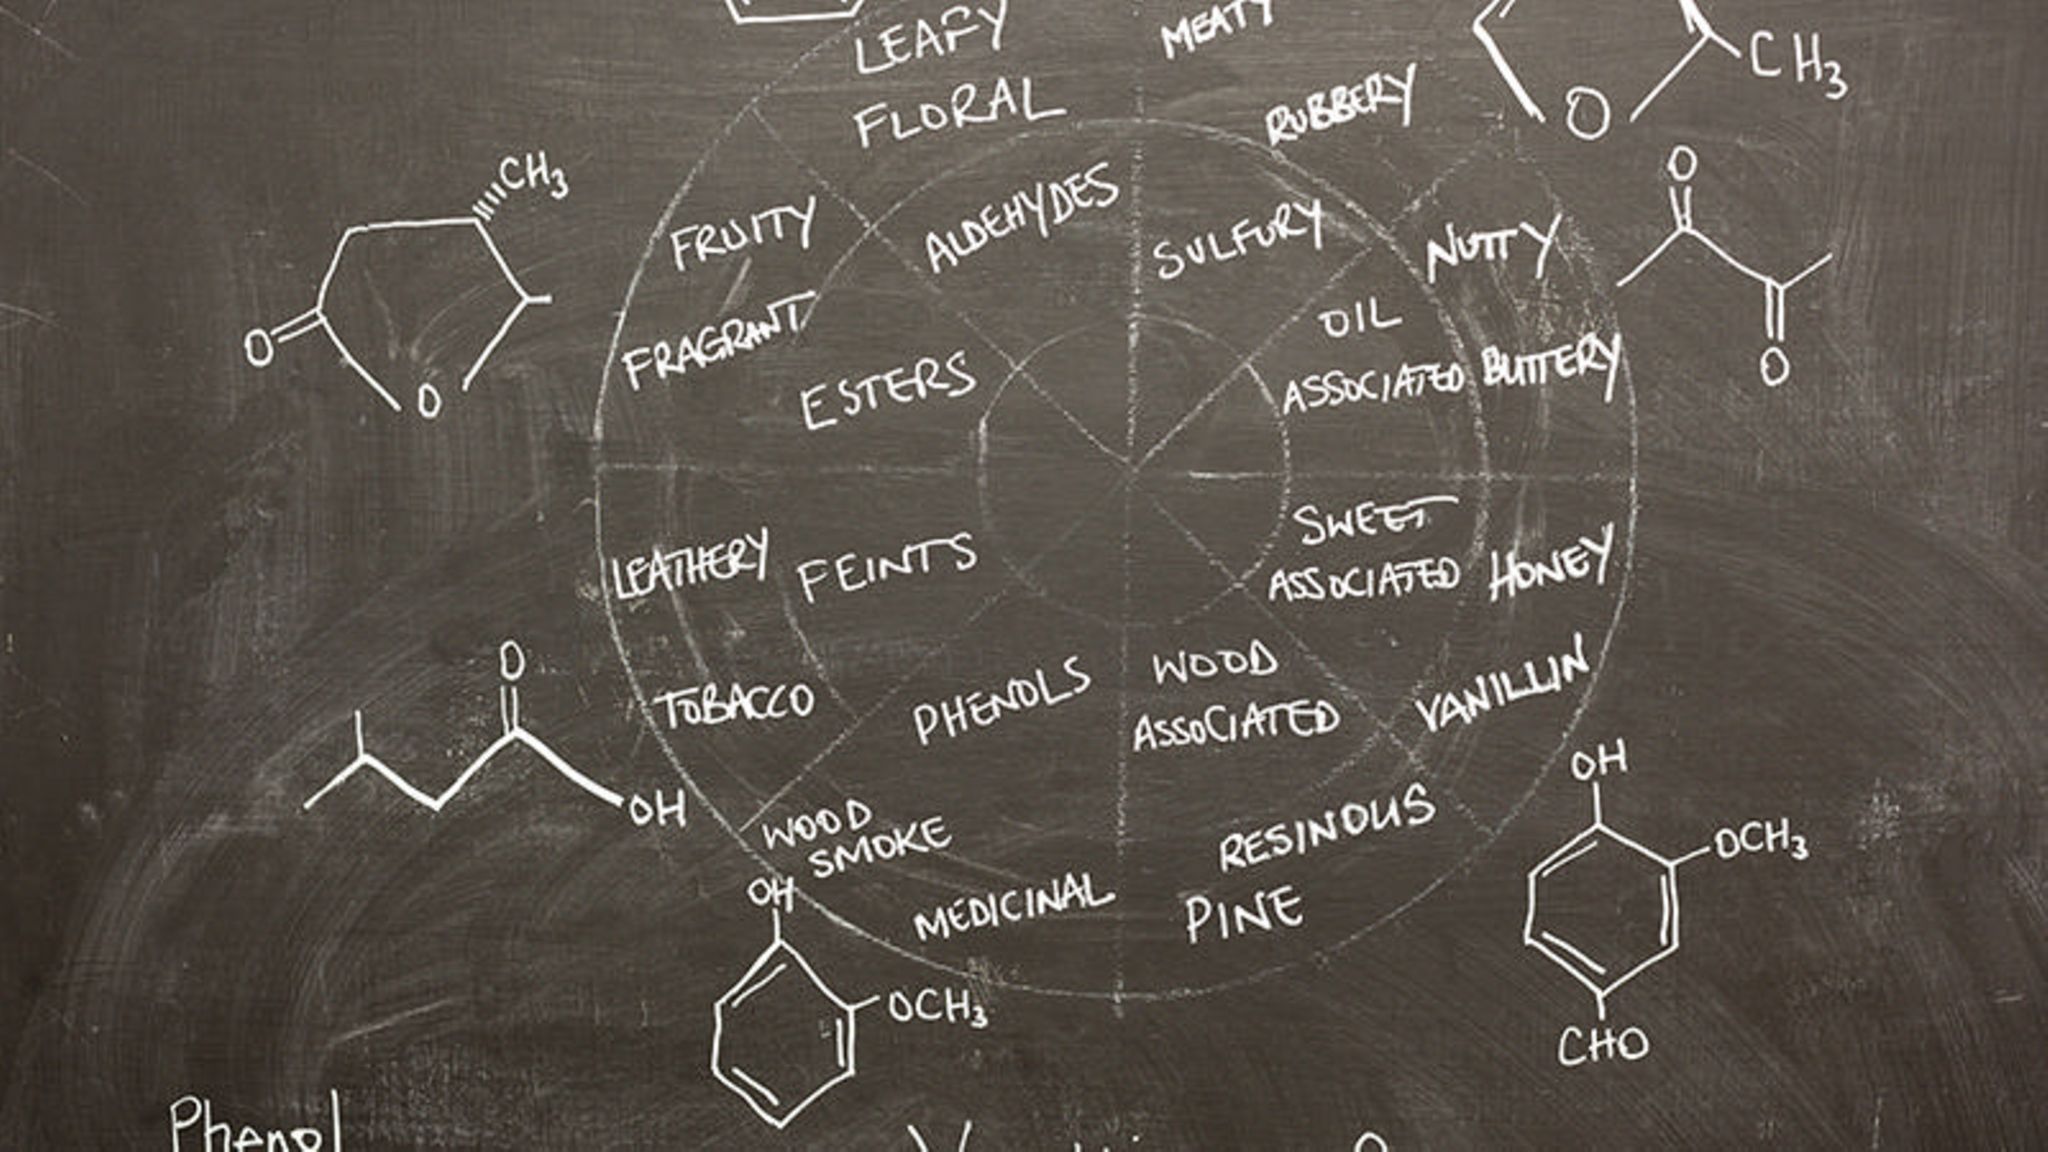 LEAFY
MEATY
CH3
O
FLORAL
RUBBERY
O
CH3
ALDEHYDES
FRUITY
SULFURY
NUTTY
FRAGRANT
OIL
O
O
ESTERS
ASSOCIATED
BUTTERY
O
O
SWEET
LEATHERY
FEINTS
ASSOCIATED
HONEY
O
WOOD
TOBACCO
PHENOLS
ASSOCIATED
VANILLIN
OH
OH
WOOD
SMOKE
RESINOUS
OCH3
OH
MEDICINAL
PINE
OCH3
CHO
Phenol